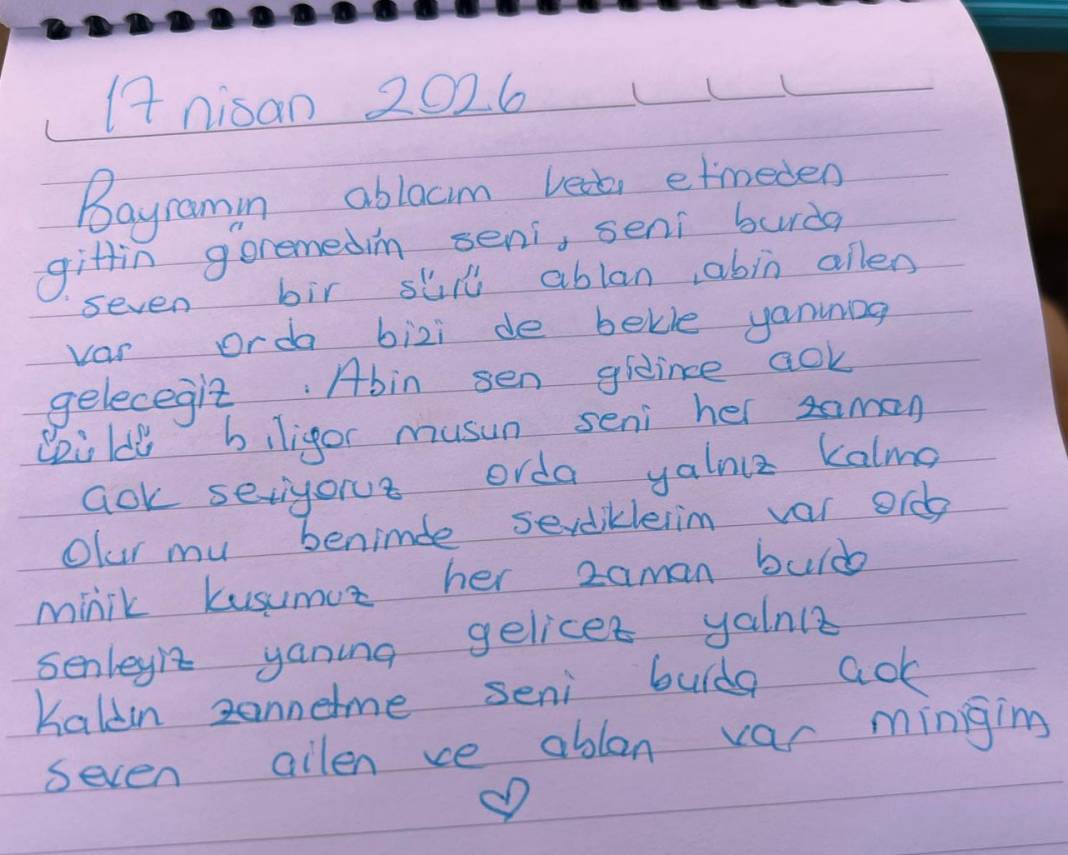 17 nisan 2026
Bayramın ablacım veda etmeden
gittin göremedim seni, seni burda
seven bir sürü ablan ,abin ailen
var orda bizi de bekle yanında
geleceğiz . Abin sen gidince çok
üzüldü biliyor musun seni her zaman
çok seviyoruz orda yalnız kalma
olur mu benimde sevdiklerim var orda
minik kuşumuz her zaman burda
senleyiz yanına gelicez yalnız
kaldın zannetme seni burda çok
seven ailen ve ablan var miniğim